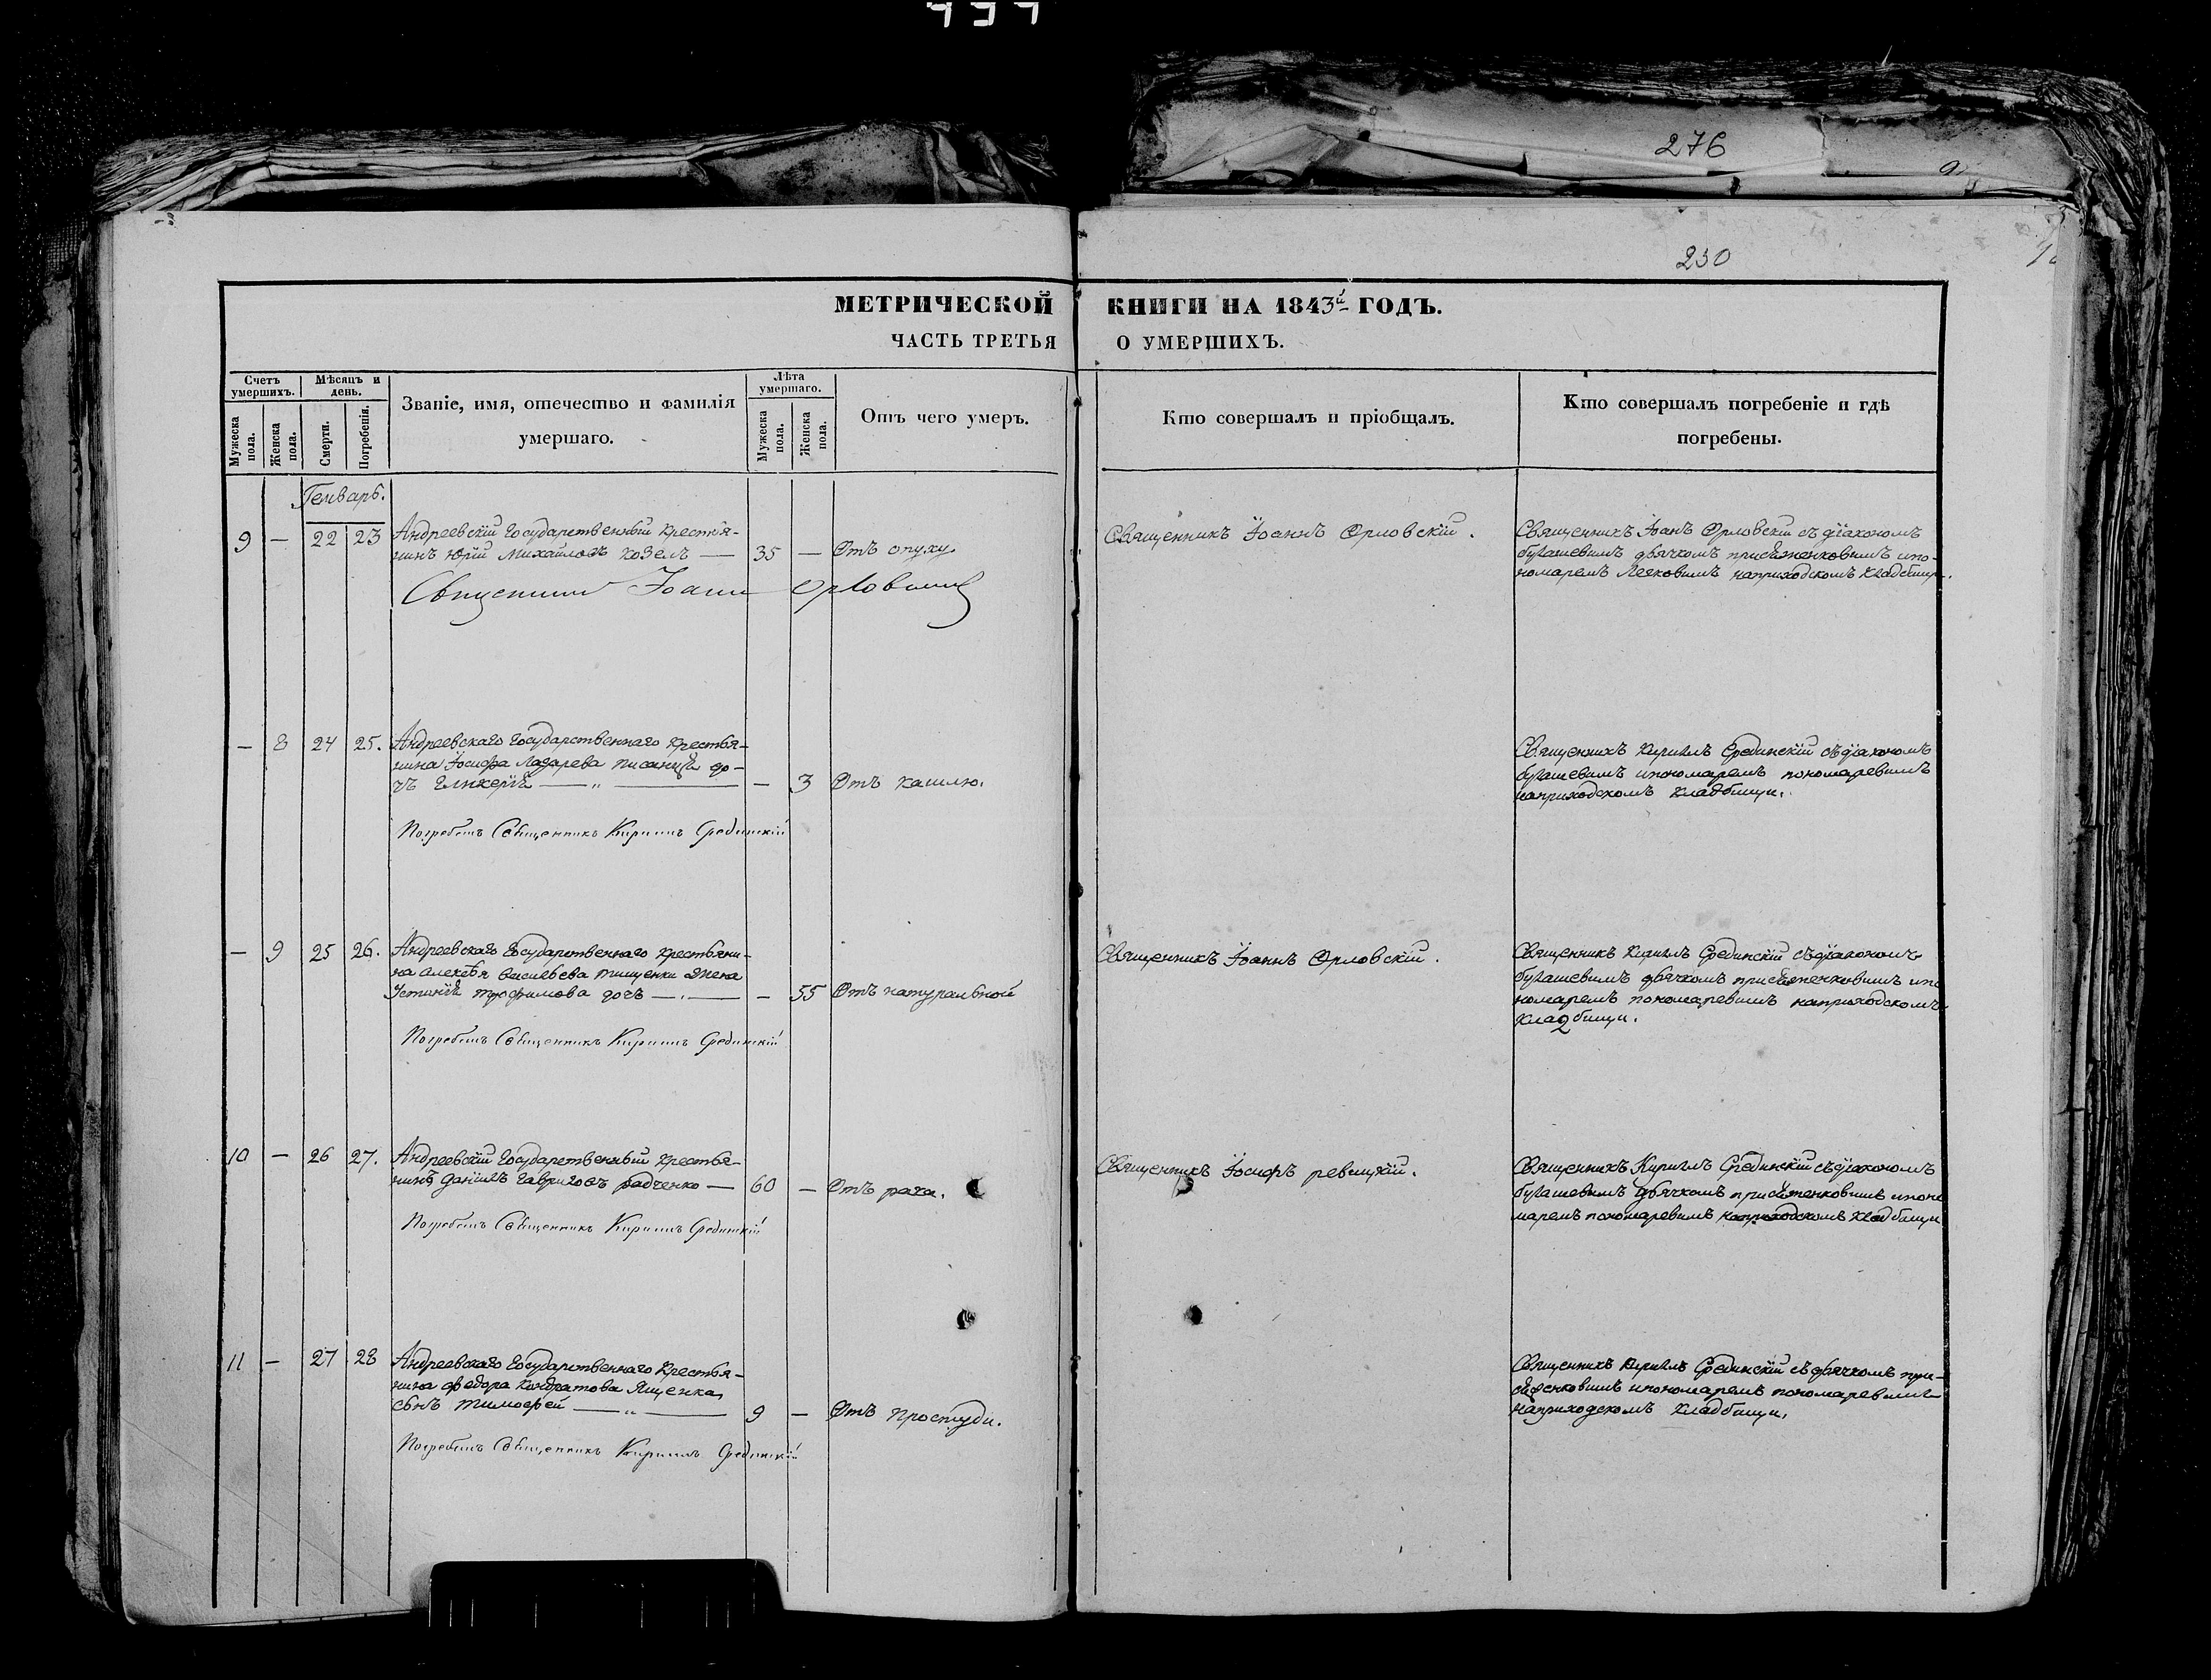 276
230
МЕТРИЧЕСКОЙ КНИГИ НА 1843й ГОДЪ.
ЧАСТЬ ТРЕТЬЯ О УМЕРШИХЪ.
Счетъ умершихъ.
Мужеска пола.
Женска пола.
Мѣсяцъ и день.
Смерти.
Погребенія.
Званіе, имя, отечество и фамилія
умершаго.
Лѣта умершаго.
Мужеска пола.
Женска пола.
Отъ чего умеръ.
Кто совершалъ и пріобщалъ.
Кто совершалъ погребеніе и гдѣ
погребены.
Генварь.
9 — 22 23 Андреевскій Государственный крестья-
нинъ Юрій Михайловъ Козелъ — 35 — Отъ опуху
Священникъ Іоаннъ Орловскій
Священникъ Іоаннъ Орловскій.
Священникъ Іоанъ Орловскій съ діакономъ
буташевимъ дьячкомъ присѣменковимъ ипо-
номаремъ наприходскомъ кладбищи.
— 8 24 25. Андреевскаго Государственнаго крестья-
нина Іосифа Лазарева до-
чъ Гликерія — „ — — 3 Отъ кашлю.
Погребалъ Священникъ Кириллъ Срединскій
Священникъ Кирилъ Срединскій съ діакономъ
буташевимъ ипономаремъ пономаревимъ
наприходскомъ кладбищи.
— 9 25 26. Андреевскаго Государственнаго крестьяни-
на Алексѣя Васильева Тищенки жена
Устинія трофимова дочъ — „ — — 55 Отъ натуральной
Погребалъ Священникъ Кириллъ Срединскій
Священникъ Іоаннъ Орловскій.
Священникъ Кирилъ Срединскій съ діакономъ
буташевимъ дьячкомъ присѣменковимъ ипо
номаремъ пономаревимъ наприходскомъ
кладбищи.
10 — 26 27. Андреевскій Государственный крестья-
нинъ Даніилъ Гавриловъ Радченко — 60 — Отъ рака.
Погребалъ Священникъ Кириллъ Срединскій
Священникъ Іосифъ ревицкій.
Священникъ Кирилъ Срединскій съ діакономъ
буташевимъ дьячкомъ присѣменковимъ ипоно
маремъ пономаревимъ наприходскомъ кладбищи
11 — 27 28 Андреевскаго Государственнаго крестья-
нина федора Кондратова Ященка
сынъ Тимофей — „ — 9 — Отъ простуди.
Погребалъ Священникъ Кириллъ Срединскій
Священникъ Кирилъ Срединскій съ дьячкомъ при-
сѣменковимъ ипономаремъ пономаревимъ
наприходскомъ кладбищи.